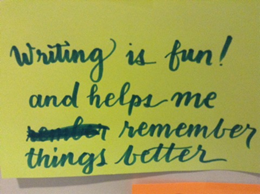 Writing is fun!
and helps me
remember
things better